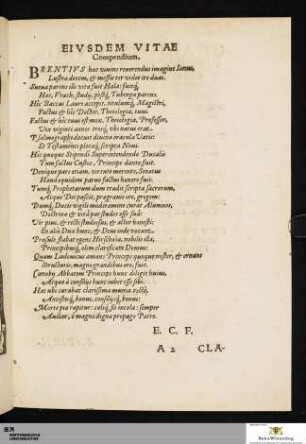 EIVSDEM VITAE
Compendium.
BRENTIVS hac vivens reverendus imagine Ianus,
Lustra decem, & messes ter videt ire duas.
Sueua parens illi vita fuit Hala: fuitq́;
Hac, Vrach, studij, pistiq́; Tubinga parens.
His Baccas Lauri accepit, Magistri,
Factus & hic Doctor, Theologia, tuus.
Factus & hic tuus est mox, Theologia, Professor,
Vix viginti annos tresq́; vbi natus erat.
Psalmographi docuit diuina oracula Vatis:
Et Testamenti placuit, scripta Noui.
Hic quoque Stipendi Superattendendo Ducalis
Tum factus Custos, Principe dante, fuit.
Denique pars etiam, virtute merente, Senatus
Haud equidem paruo factus honore fuit.
Tumq́; Prophetarum dum tradit scripta sacrorum,
Atque Deo pascit, pragrauis ore, gregem:
Dumq́; Ducis vigili moderamine curat Alumnos,
Doctrina & vita par studet esse suis:
Vir pius, & recti studiosus, & actor honesti:
Ex alijs Dux hunc, & Deus inde vocant.
Praesule stabat egens Hirschauia, nobilis illa;
Principibusq́; olim clarificata Domus:
Quam Ludouicus amans Princeps quoque noster, & ornans
Structuris, magno grandibus aere, fuit.
Cœnoby Abbatem Princeps hunc diligit huius,
Atque à consilijs hunc iubet esse sibi.
Hac vbi curabat clarissima munia rectè,
Amicisq́; bonus, consilijsq́; bonus:
Morte pia rapitur: caliq́; sit incola: semper
Ambiet, ô magno digna propago Patre.
E. C. F.
A 2 CLA-